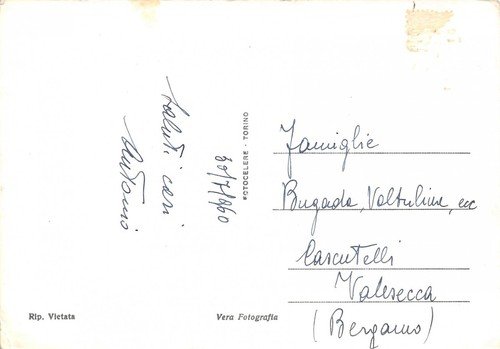 Saluti cari
Antonio
30/7/960
FOTOCELERE - TORINO
Famiglie
Bugada, Valtulina, ecc
Cascutelli
Valsecca
(Bergamo)
Rip. Vietata
Vera Fotografia